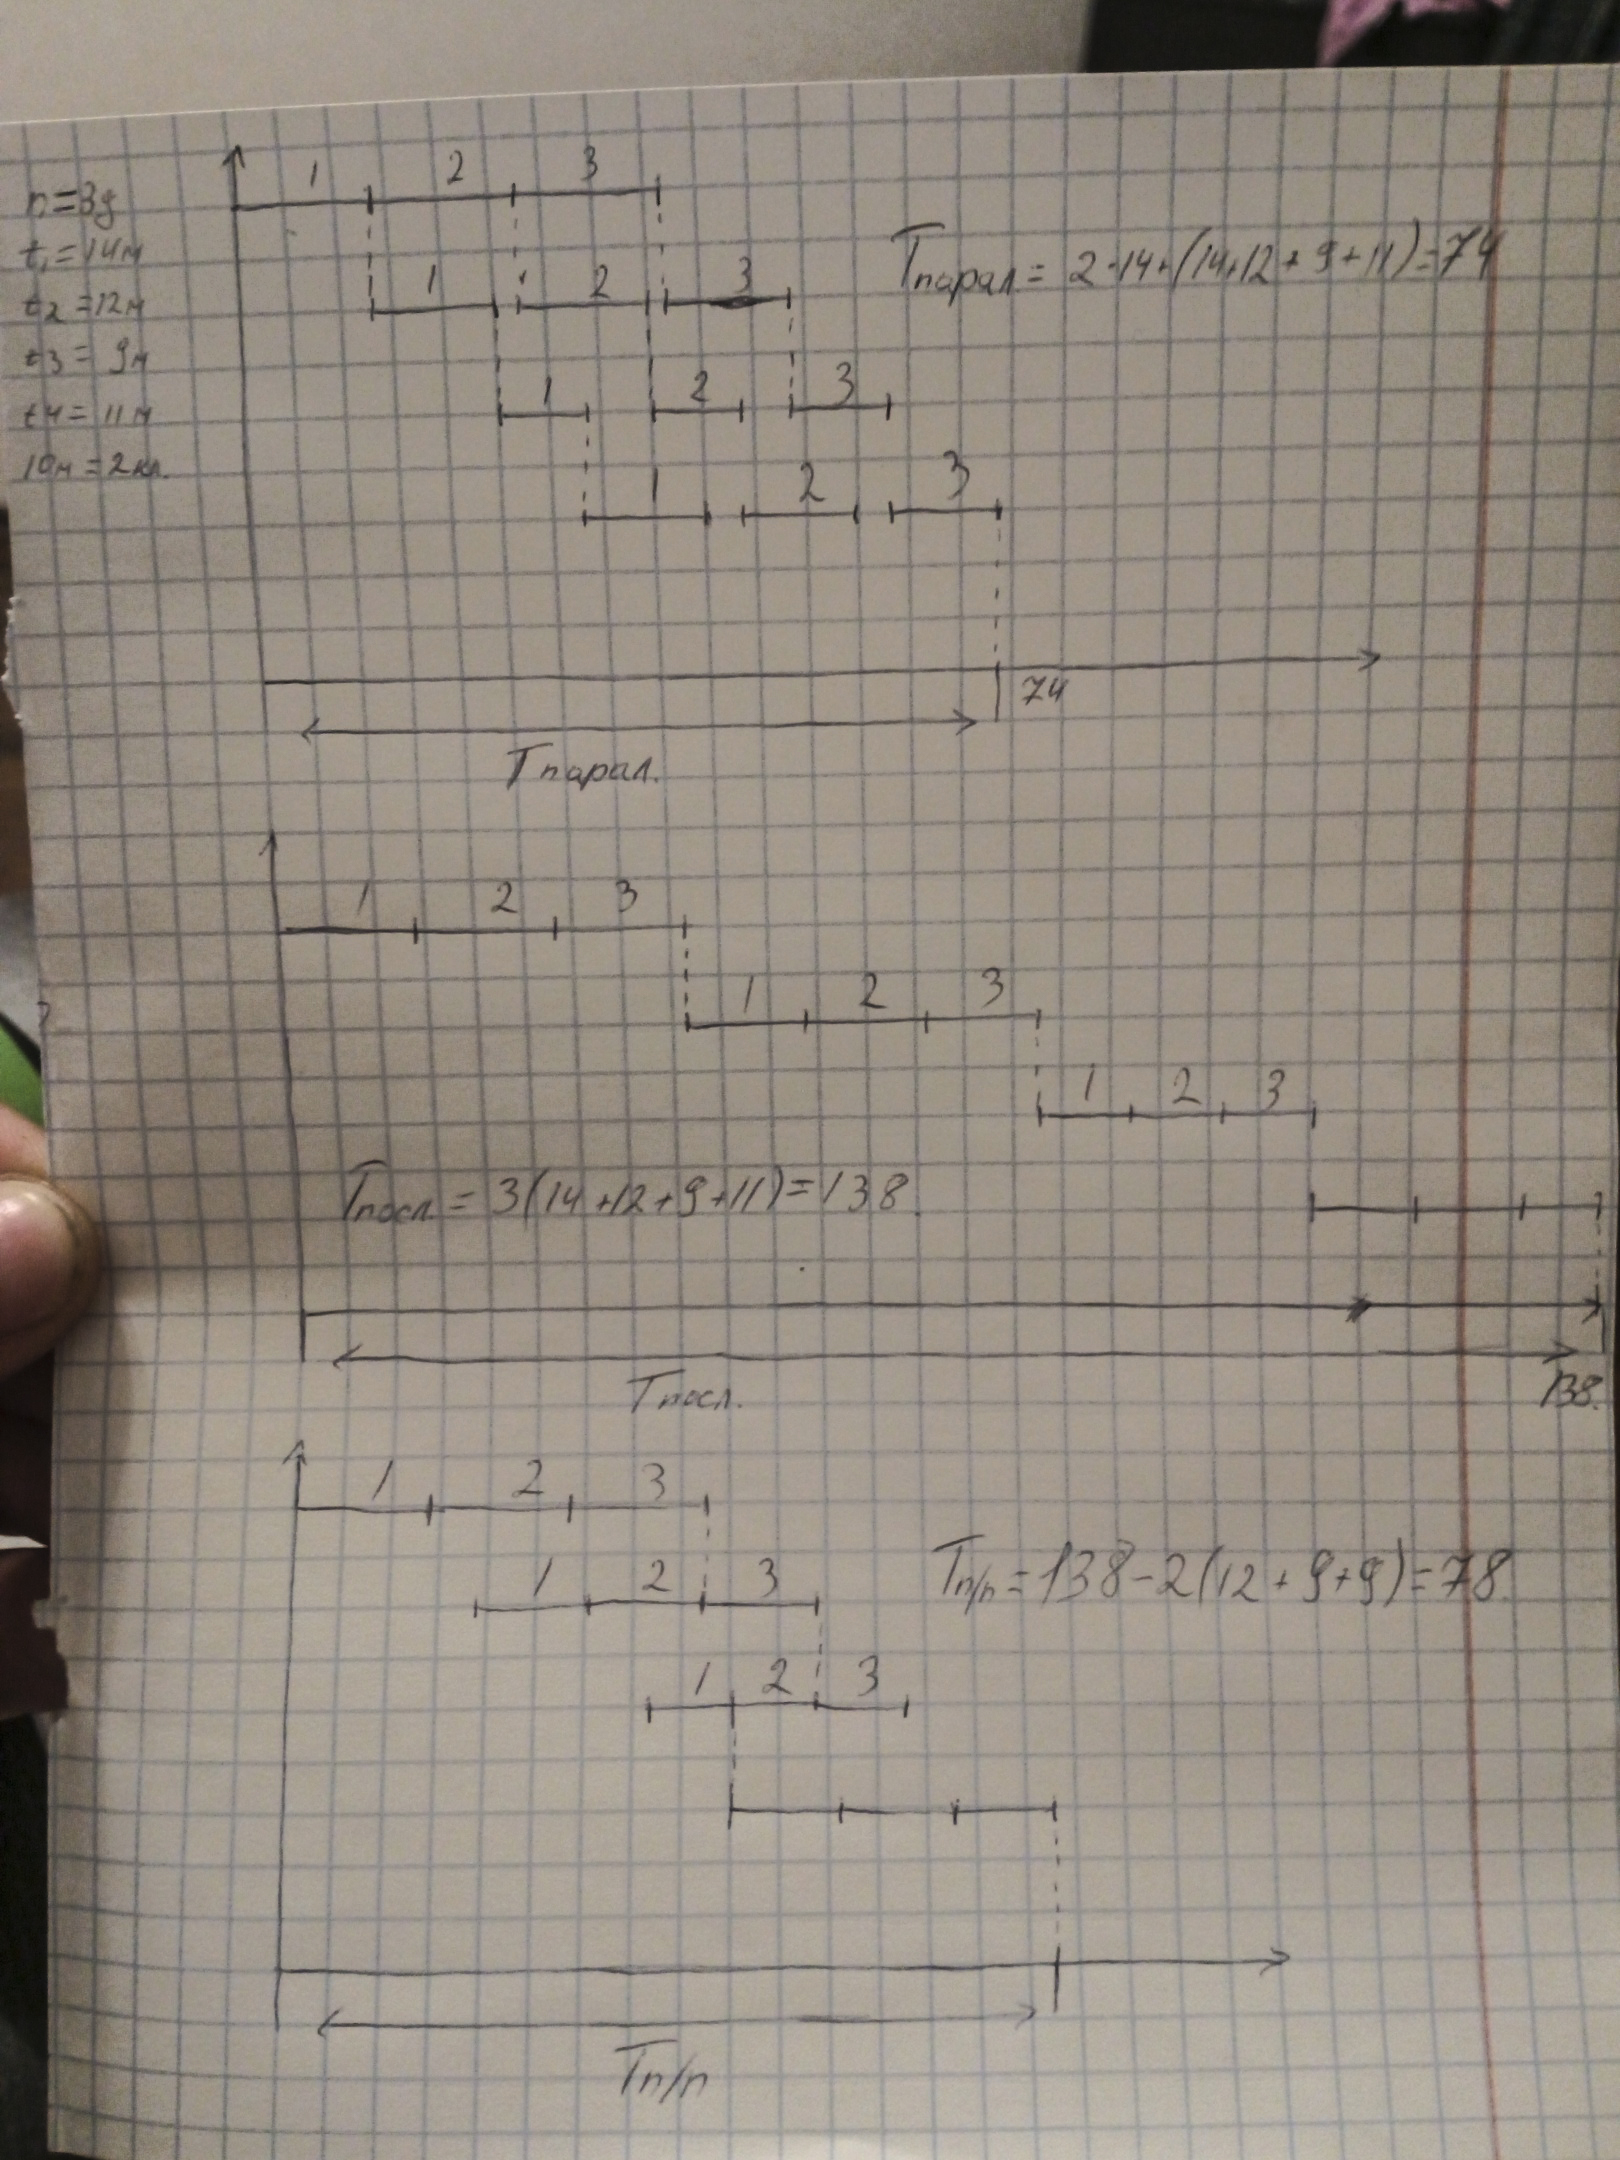 1 2 3
n=3д
t₁=14м
t2=12м
t3=9м
t4=11м
10м=2кл.
1 2 3
Tпарал.=2·14+(14+12+9+11)=74
1 2 3
1 2 3
74
Tпарал.
1 2 3
1 2 3
1 2 3
Tпосл.=3(14+12+9+11)=138
Tпосл.
138.
1 2 3
1 2 3
Tп/п=138-2(12+9+9)=78.
1 2 3
Tп/п